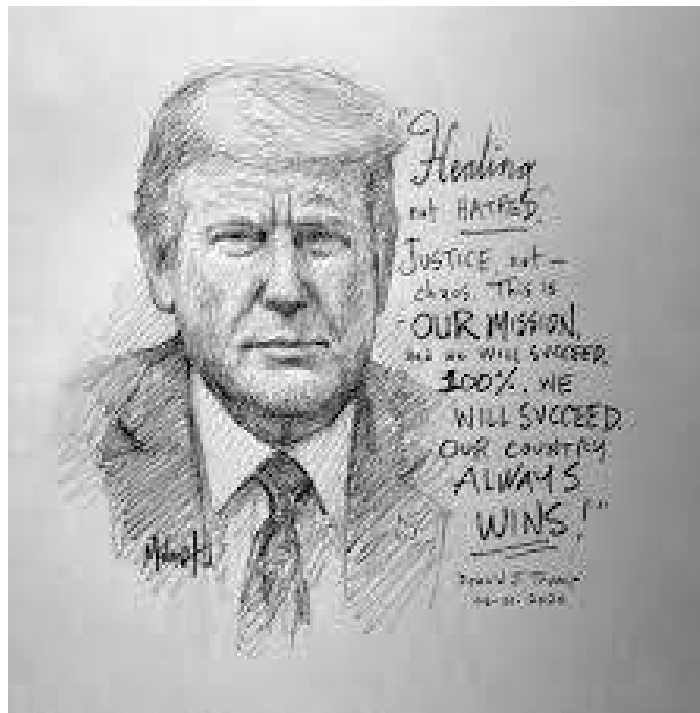 "Healing
not HATRED.
JUSTICE, not –
chaos. This is
OUR MISSION,
and we WILL SUCCEED.
100%. WE
WILL SUCCEED.
OUR COUNTRY
ALWAYS
WINS!"
Donald J. Trump
2020